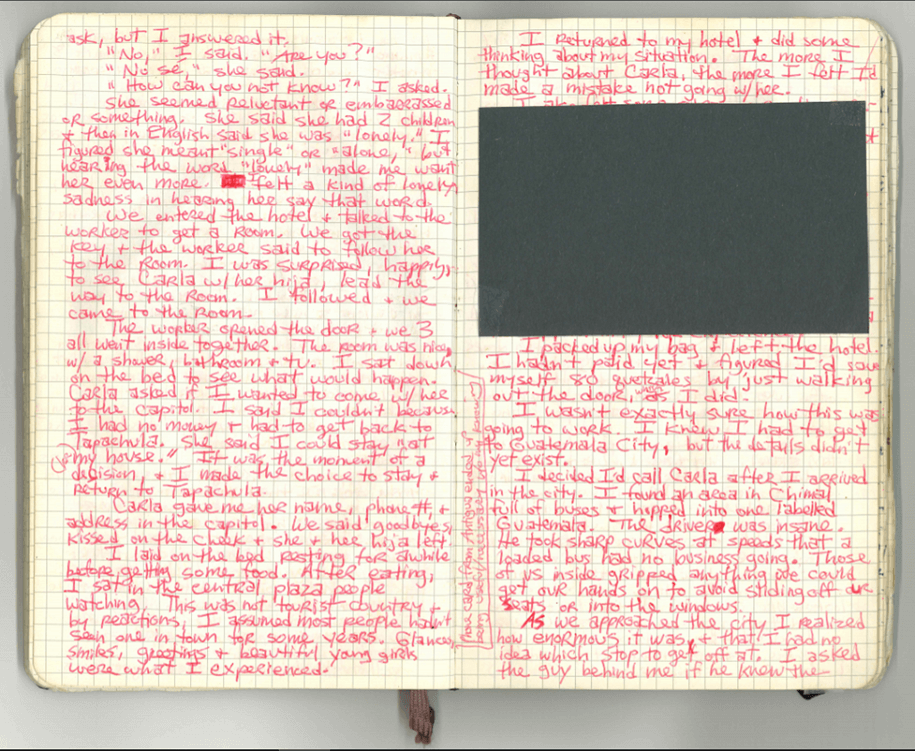 ask, but I answered it.
"No," I said. "Are you?"
"No sé," she said.
"How can you not know?" I asked.
She seemed reluctant or embarrassed
or something. She said she had 2 children
+ then in English said she was "lonely." I
figured she meant "single" or "alone," but
hearing the word "lonely" made me want
her even more. I felt a kind of lonely
sadness in hearing her say that word.
We entered the hotel + talked to the
worker to get a room. We got the
key + the worker said to follow her
to the room. I was surprised, happily,
to see Carla w/her hija, lead the
way to the room. I followed + we
came to the room.
The worker opened the door + we 3
all went inside together. The room was nice,
w/ a shower, bathroom + tv. I sat down
on the bed to see what would happen.
Carla asked if I wanted to come w/her
to the capitol. I said I couldn't because
I had no money + had to get back to
Tapachula. She said I could stay "at
my house." It was the moment of a
decision, + I made the choice to stay +
return to Tapachula.
Carla gave me her name, phone #, +
address in the capitol. We said goodbyes,
kissed on the cheek + she + her hija left.
I laid on the bed resting for awhile
before getting some food. After eating,
I sat in the central plaza people
watching. This was not tourist country +
by reactions, I assumed most people hadn't
seen one in town for some years. Glances,
smiles, greetings + beautiful young girls
were what I experienced.
I returned to my hotel + did some
thinking about my situation. The more I
thought about Carla, the more I felt I'd
made a mistake not going w/her.
I packed up my bag + left the hotel.
I hadn't paid yet + figured I'd save
myself 80 quetzales by just walking
out the door, as I did.
I wasn't exactly sure how this was
going to work. I knew I had to get
to Guatemala City, but the details didn't
yet exist.
I decided I'd call Carla after I arrived
in the city. I found an area in Chimal
full of buses + hopped into one labelled
Guatemala. The driver was insane.
He took sharp curves at speeds that a
loaded bus had no business going. Those
of us inside gripped anything we could
get our hands on to avoid sliding off our
seats or into the windows.
As we approached the city I realized
how enormous it was, + that I had no
idea which stop to get off at. I asked
the guy behind me if he knew the
phone card from Antigua ended up
being